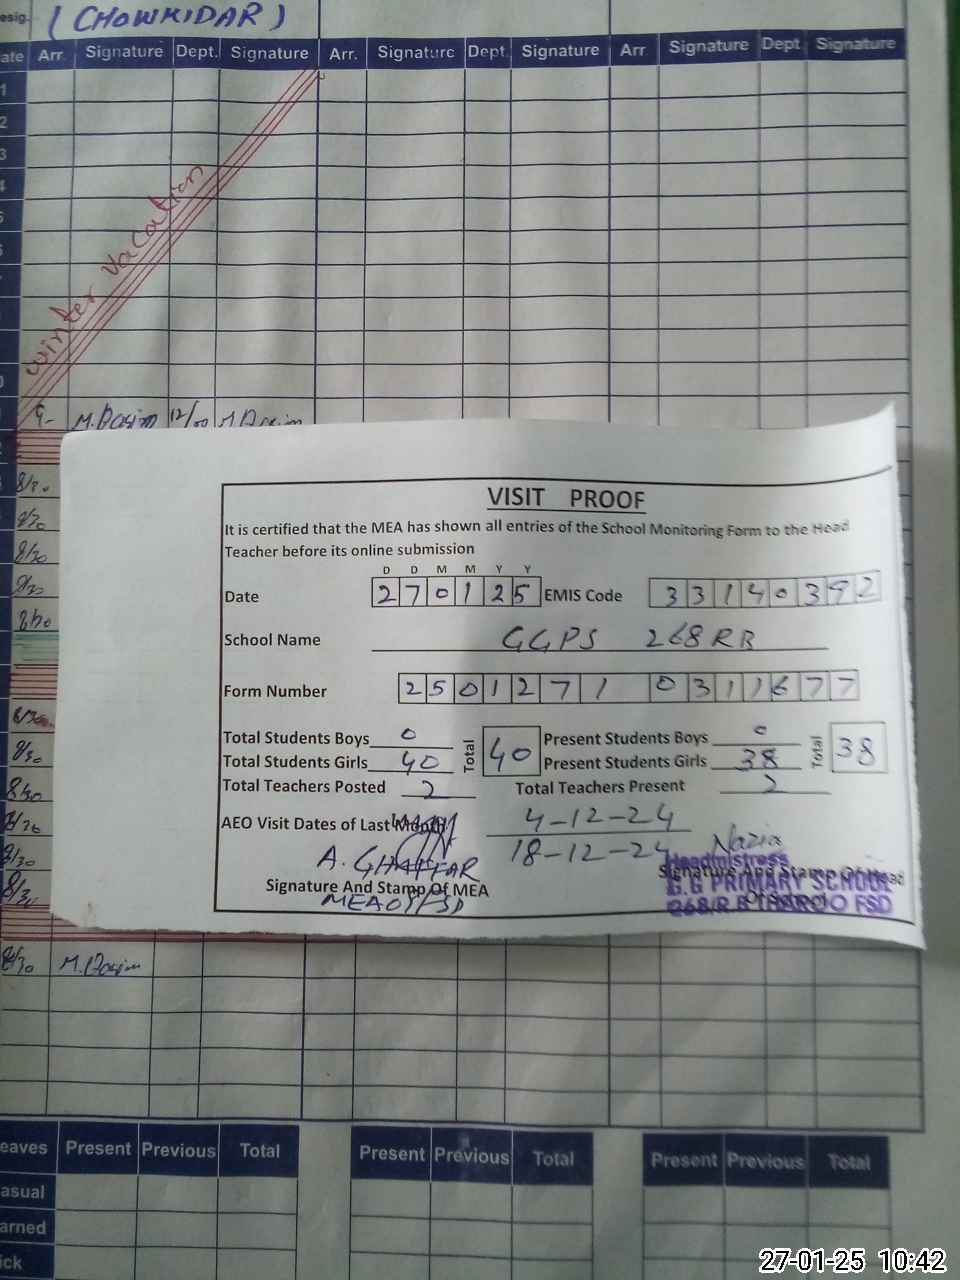 esig. (CHOWKIDAR)
ate Arr. Signature Dept. Signature Arr. Signature Dept. Signature Arr. Signature Dept. Signature
1
2
3
4
5
winter vacation
9- M. Basim 12/00 M. Basim
8/30
8/30
8/30
8/30
VISIT PROOF
It is certified that the MEA has shown all entries of the School Monitoring Form to the Head
Teacher before its online submission
D D M M Y Y
Date 270125 EMIS Code 33140392
School Name GGPS 268 RB
Form Number 2501271 0311677
Total Students Boys 0 Total 40 Present Students Boys 0 Total 38
Total Students Girls 40 Present Students Girls 38
Total Teachers Posted 2 Total Teachers Present 2
AEO Visit Dates of Last Month 4-12-24
18-12-24 Nazia
A. GHAFFAR
Signature And Stamp Of MEA Signature And Stamp Of Head
Headmistress
G.G PRIMARY SCHOOL
268/R.B FSD
8/30
8/30
8/30
8/30
8/30 M. Basim
eaves Present Previous Total Present Previous Total Present Previous Total
asual
arned
ick
27-01-25 10:42